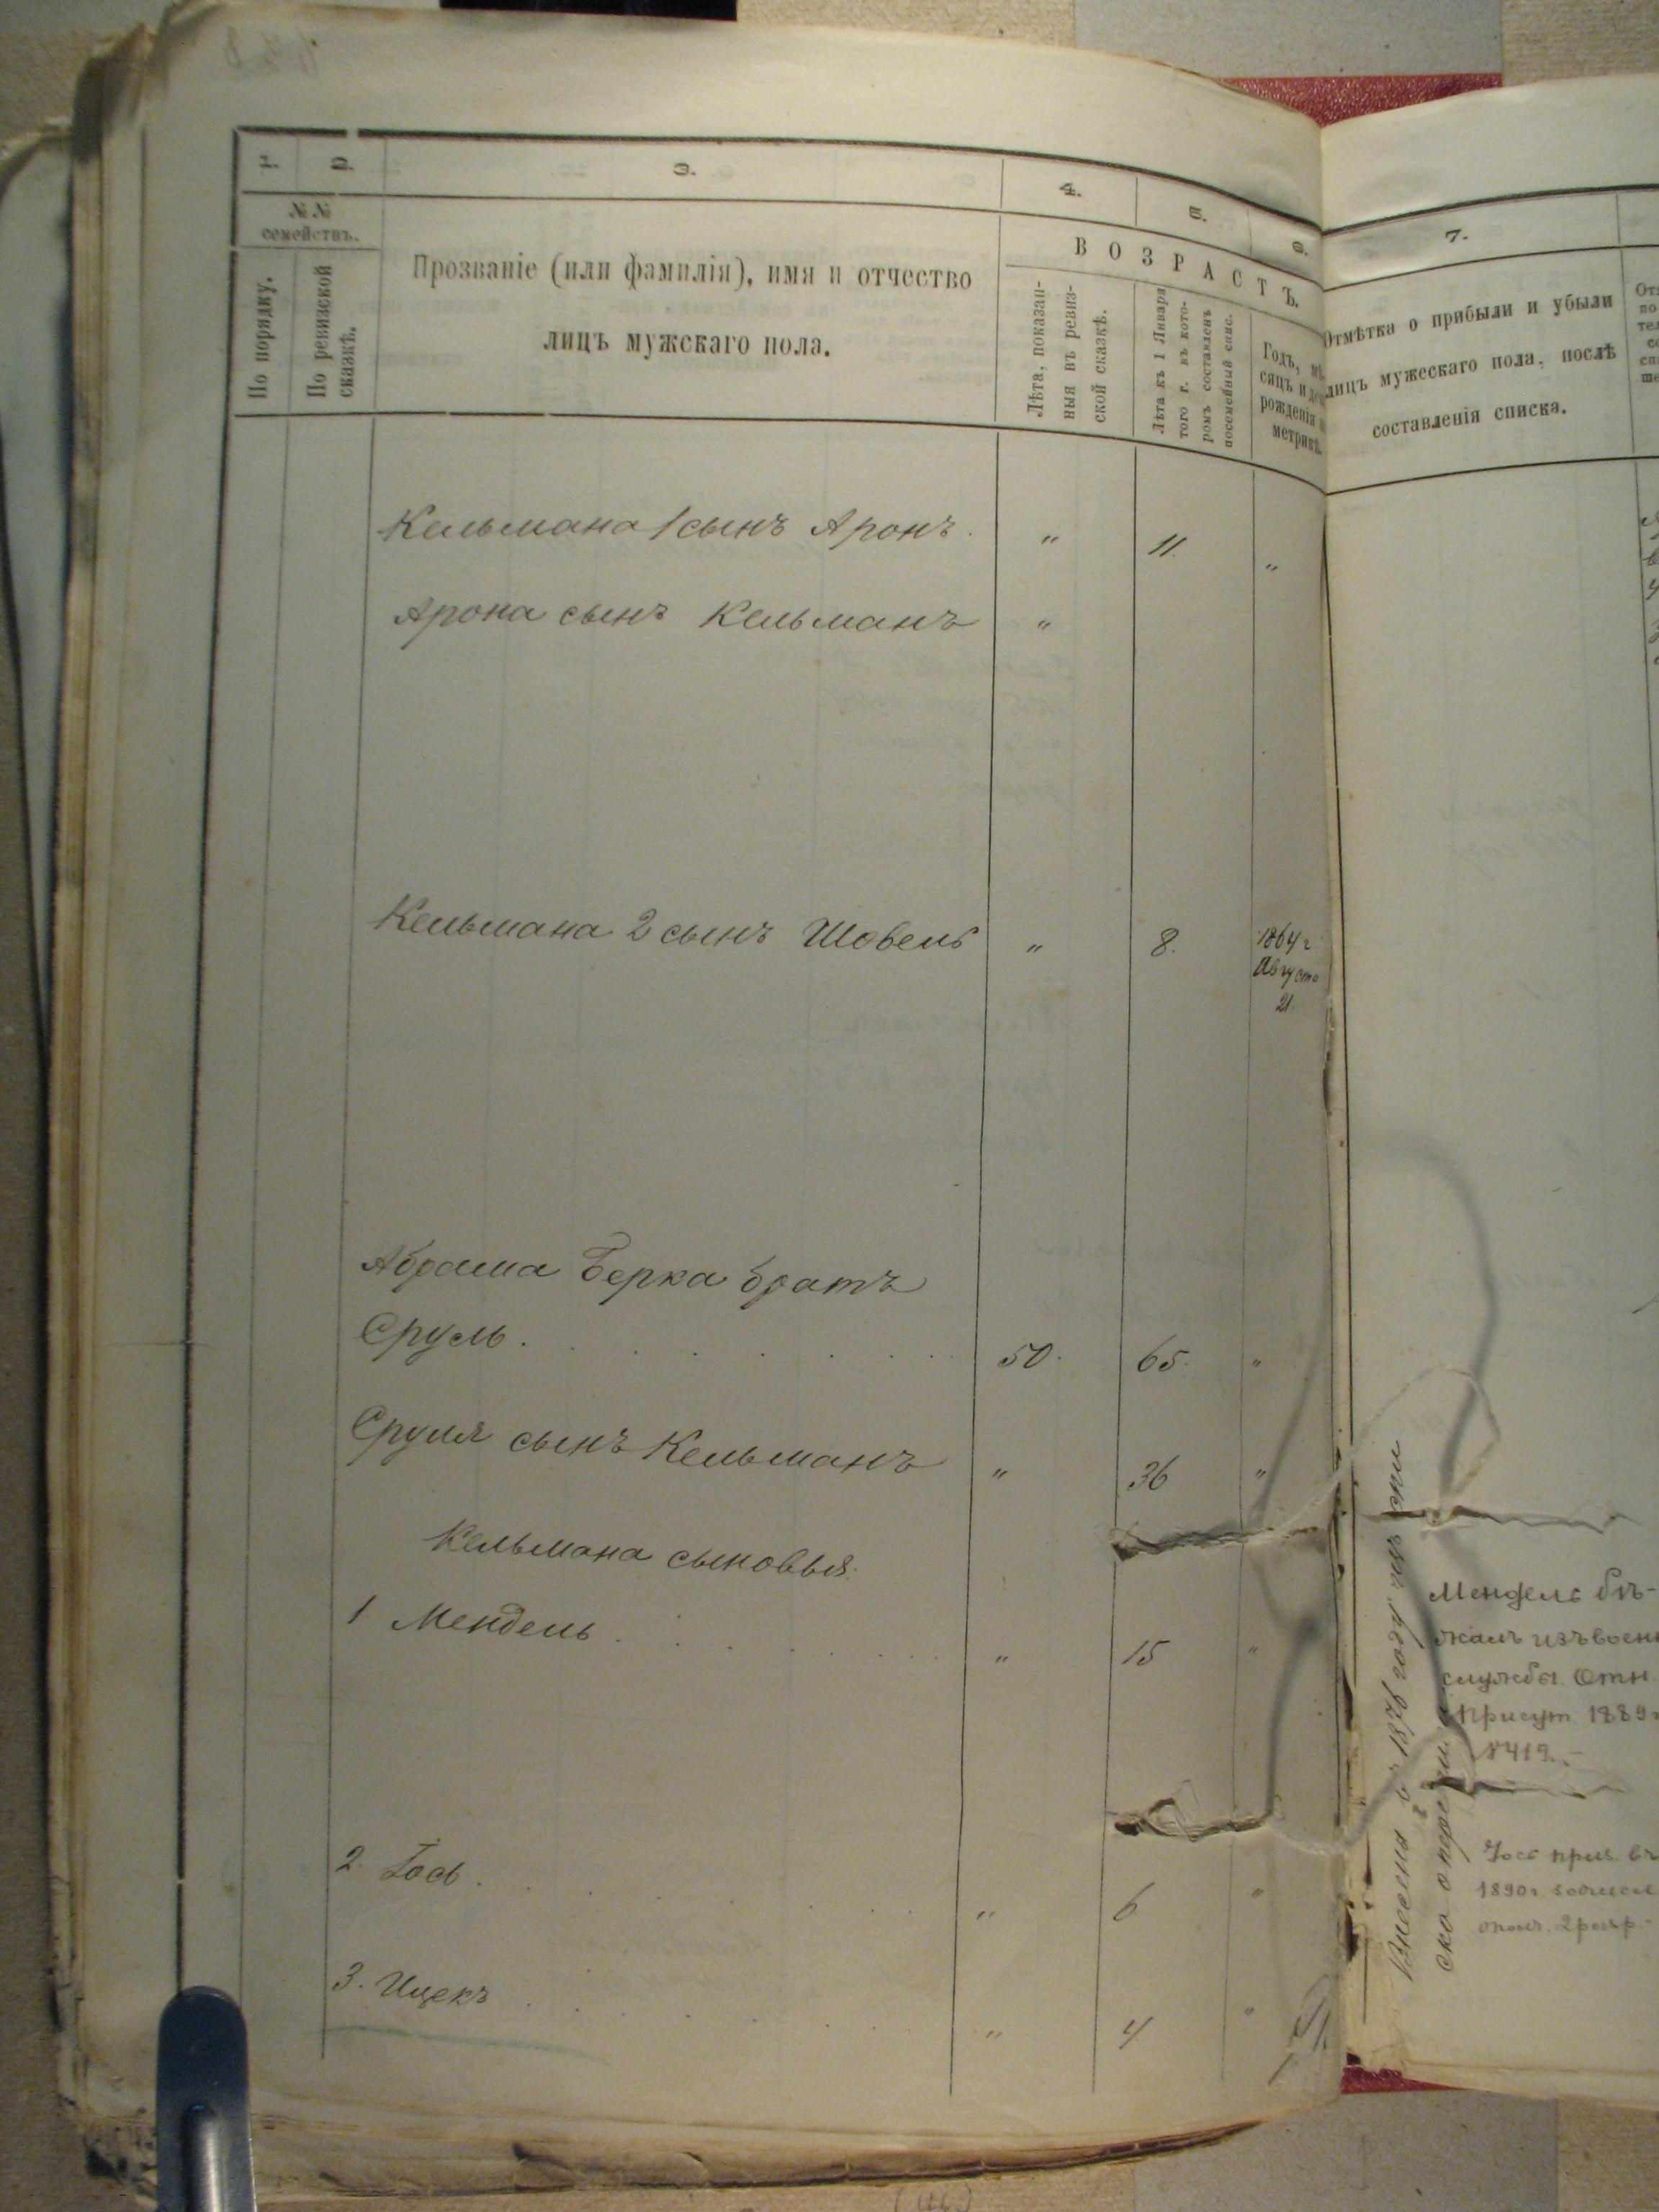 1.
2.
3.
4.
5.
6.
7.
№ №
семействъ.
По порядку.
По ревизской
сказкѣ.
Прозваніе (или фамилія), имя и отчество
лицъ мужскаго пола.
ВОЗРАСТЪ.
Лѣта, показан-
ныя въ ревиз-
ской сказкѣ.
Лѣта къ 1 Января
того г. въ кото-
ромъ составленъ
посемейный спис.
Годъ, мѣ-
сяцъ и
рожденія
метрикѣ.
Отмѣтка о прибыли и убыли
лицъ мужескаго пола, послѣ
составленія списка.
Кельмана 1 сынъ Аронъ. " 11. "
Арона сынъ Кельманъ "
Кельмана 2 сынъ Шовель " 8. 1864 г
Августа
21.
Абрама Берка братъ
Сруль. 50. 65. "
Сруля сынъ Кельманъ " 36 "
Кельмана сыновья:
1 Мендель " 15 "
2. Іось. " 6 "
3. Ицекъ " 4 "
Внесены въ 1876 году
Мендель бѣ-
жалъ изъ воен
службы. Отн.
Присут. 1889
№419.-
Іось приз. въ
1890 г. зачисл
ополч. 2 разр.-